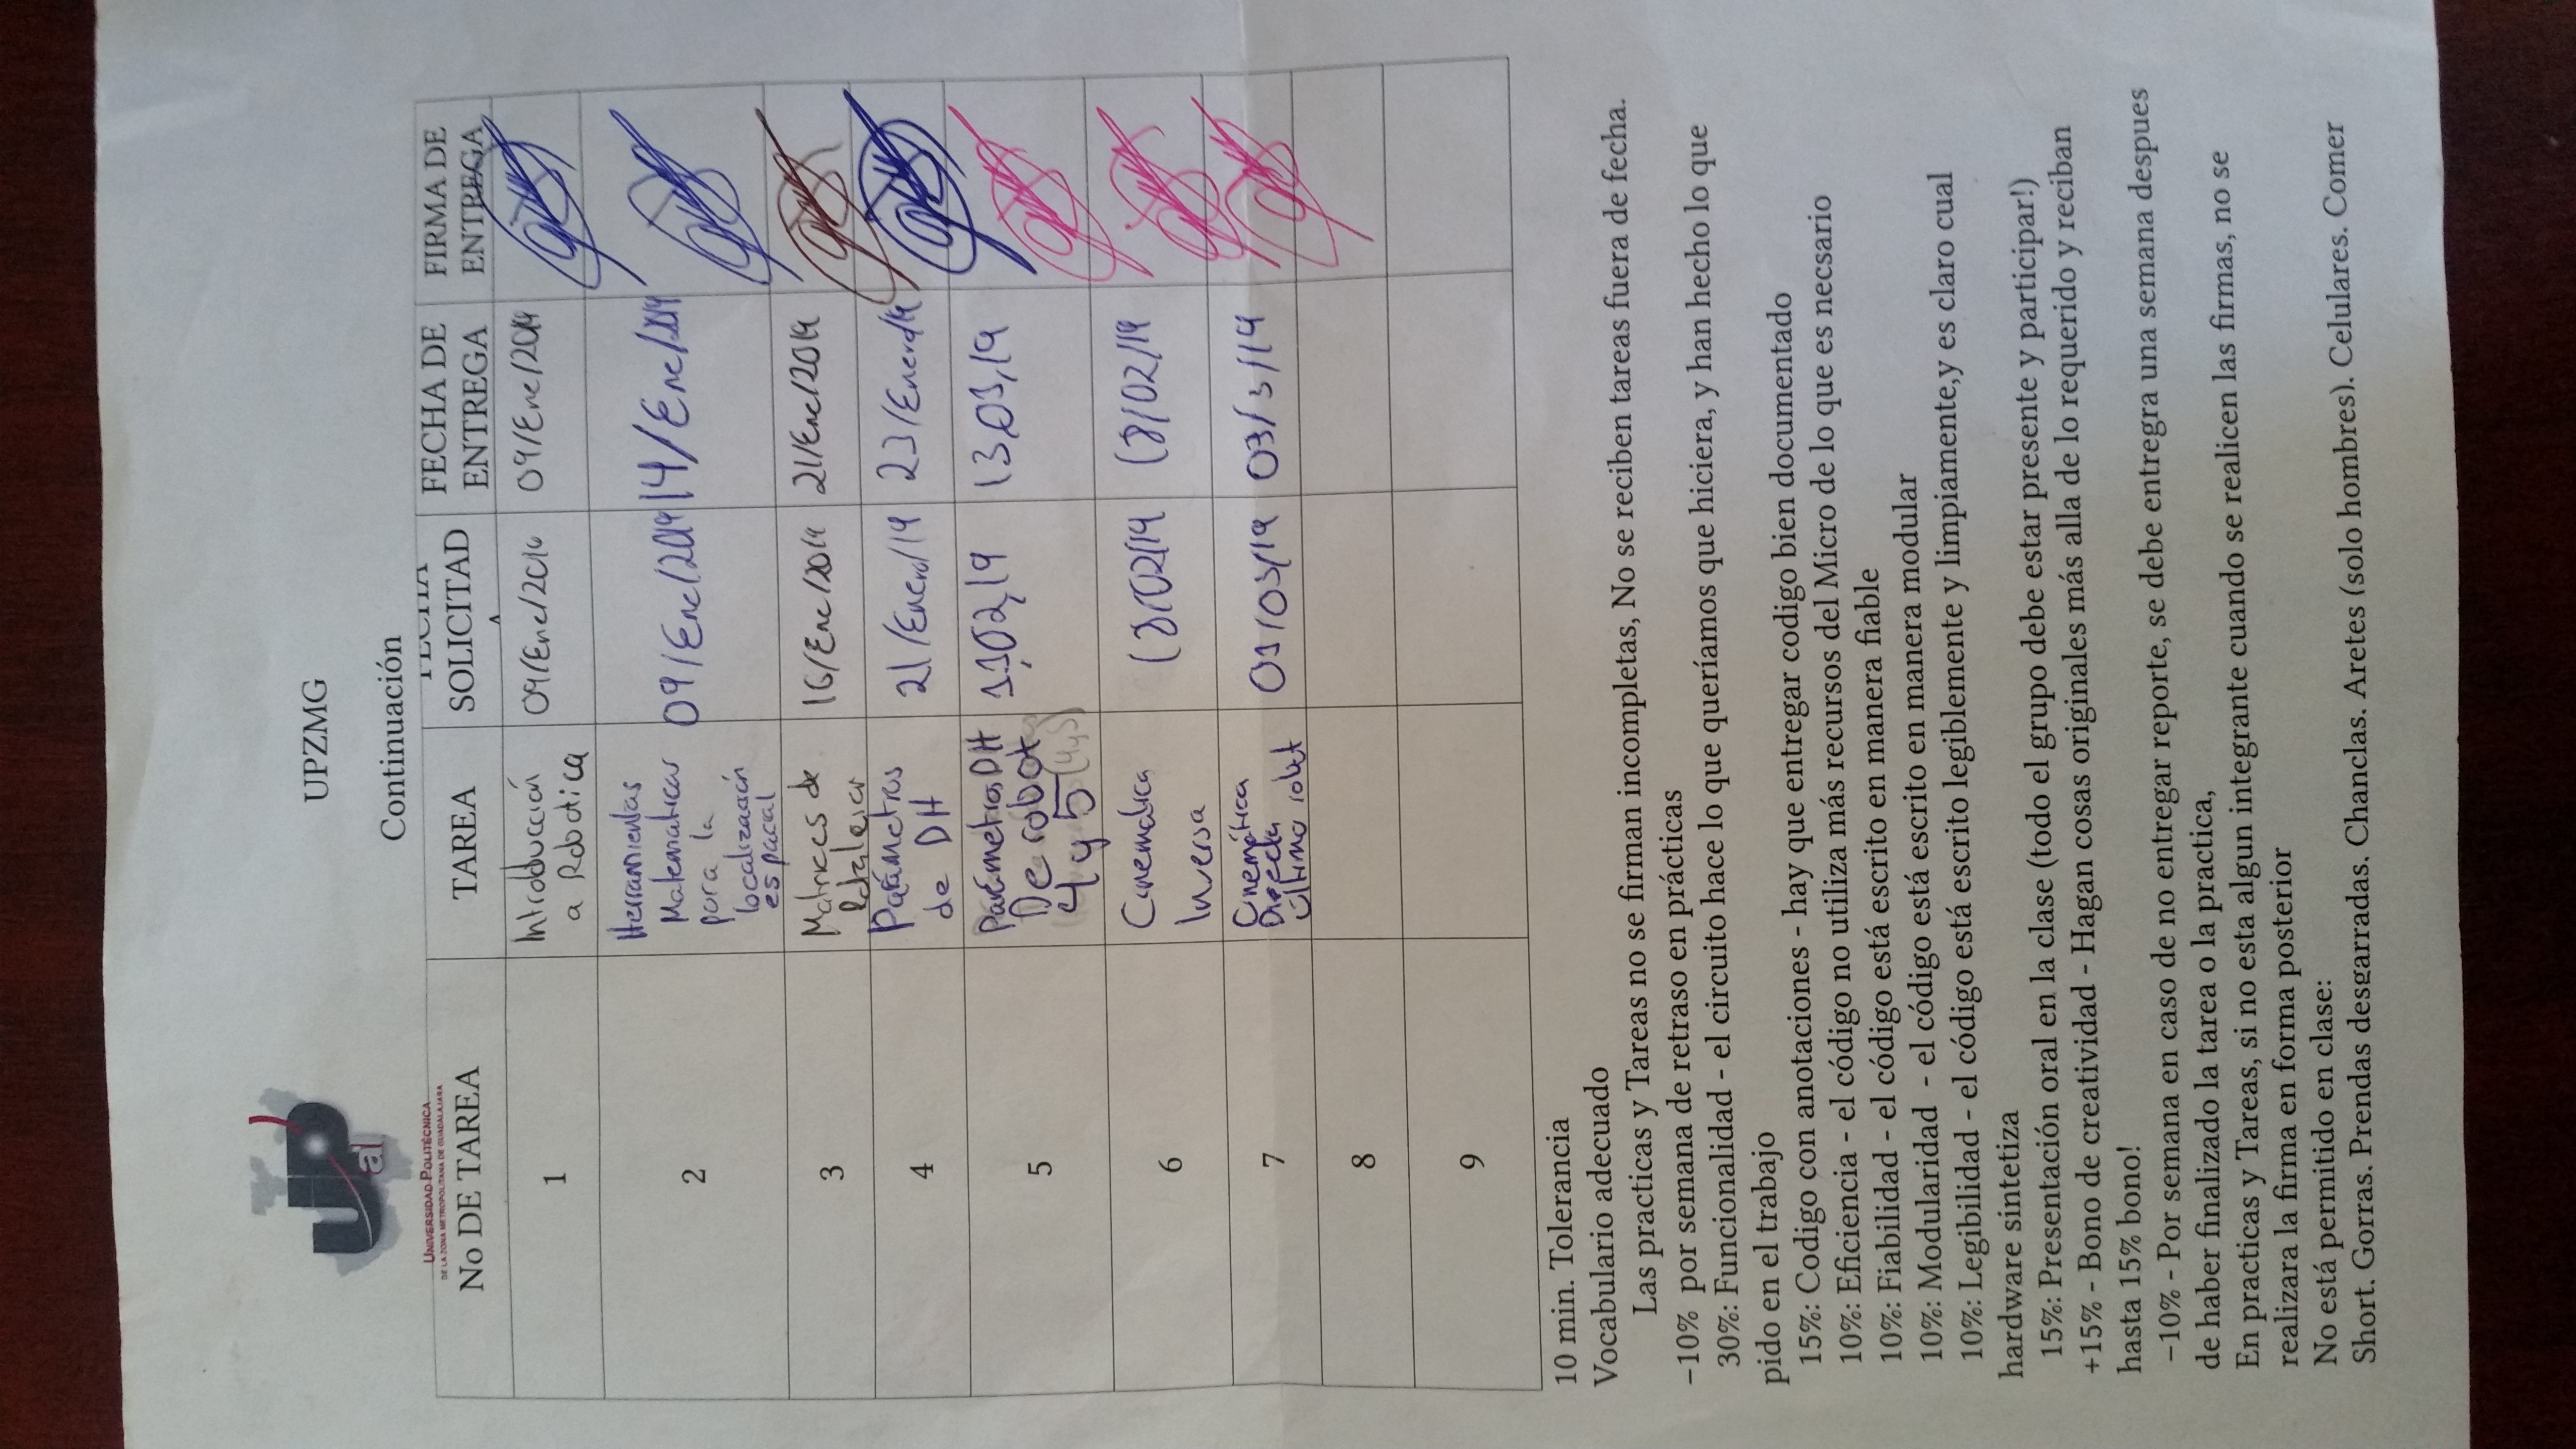 UP
al
UNIVERSIDAD POLITÉCNICA
DE LA ZONA METROPOLITANA DE GUADALAJARA
UPZMG
Continuación
No DE TAREA TAREA FECHA SOLICITADA FECHA DE ENTREGA FIRMA DE ENTREGA
1 Introducción a Robotica 09/Ene/2019 09/Ene/2019
2 Herramientas Matematicas para la localización espacial 09/Ene/2019 14/Ene/2019
3 Matrices de 16/Ene/2019 21/Ene/2019
4 Parámetros de DH 21/Enero/19 23/Enero/19
5 Parámetros DH De robot 4 y 5 (4y5) 11,02,19 13,03,19
6 Cinematica Inversa 18/02/19 18/02/19
7 Cinemática Directa último robot 03/19 /3/19
8
9
10 min. Tolerancia
Vocabulario adecuado
Las practicas y Tareas no se firman incompletas, No se reciben tareas fuera de fecha.
−10% por semana de retraso en prácticas
30%: Funcionalidad - el circuito hace lo que queríamos que hiciera, y han hecho lo que
pido en el trabajo
15%: Codigo con anotaciones - hay que entregar codigo bien documentado
10%: Eficiencia - el código no utiliza más recursos del Micro de lo que es necsario
10%: Fiabilidad - el código está escrito en manera fiable
10%: Modularidad - el código está escrito en manera modular
10%: Legibilidad - el código está escrito legiblemente y limpiamente,y es claro cual
hardware sintetiza
15%: Presentación oral en la clase (todo el grupo debe estar presente y participar!)
+15% - Bono de creatividad - Hagan cosas originales más alla de lo requerido y reciban
hasta 15% bono!
−10% - Por semana en caso de no entregar reporte, se debe entregra una semana despues
de haber finalizado la tarea o la practica,
En practicas y Tareas, si no esta algun integrante cuando se realicen las firmas, no se
realizara la firma en forma posterior
No está permitido en clase:
Short. Gorras. Prendas desgarradas. Chanclas. Aretes (solo hombres). Celulares. Comer